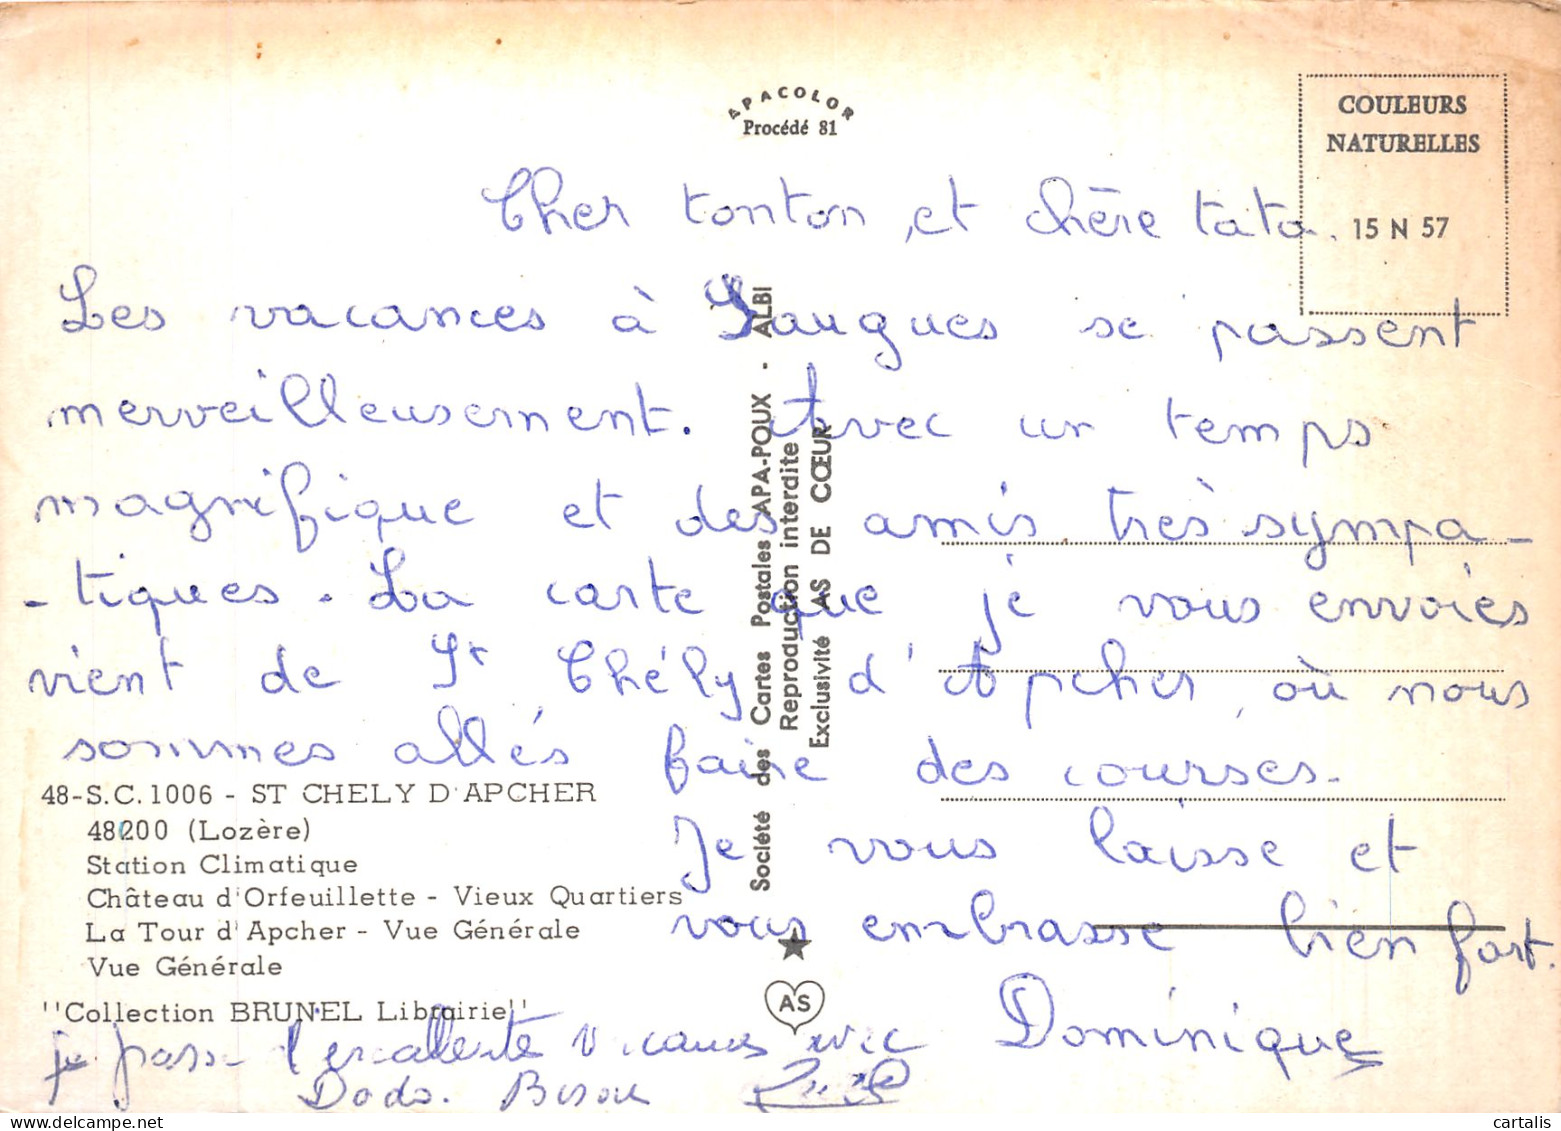 APACOLOR
Procédé 81
COULEURS
NATURELLES
15 N 57
Cher tonton, et chère tata.
Les vacances à Saugues se passent
merveilleusement. Avec un temps
magnifique et des amis très sympa-
-tiques. La carte que je vous envoies
vient de St Chély d'Apcher, où nous
sommes allés faire des courses.
Je vous laisse et
vous embrasse bien fort.
Dominique
je passe d'excellente vacances avec
Dodo. Bisous
48-S.C. 1006 - ST CHELY D'APCHER
48200 (Lozère)
Station Climatique
Château d'Orfeuillette - Vieux Quartiers
La Tour d'Apcher - Vue Générale
Vue Générale
"Collection BRUNEL Librairie"
Société des Cartes Postales APA-POUX - ALBI
Reproduction interdite
Exclusivité AS DE CŒUR
AS
cartalis